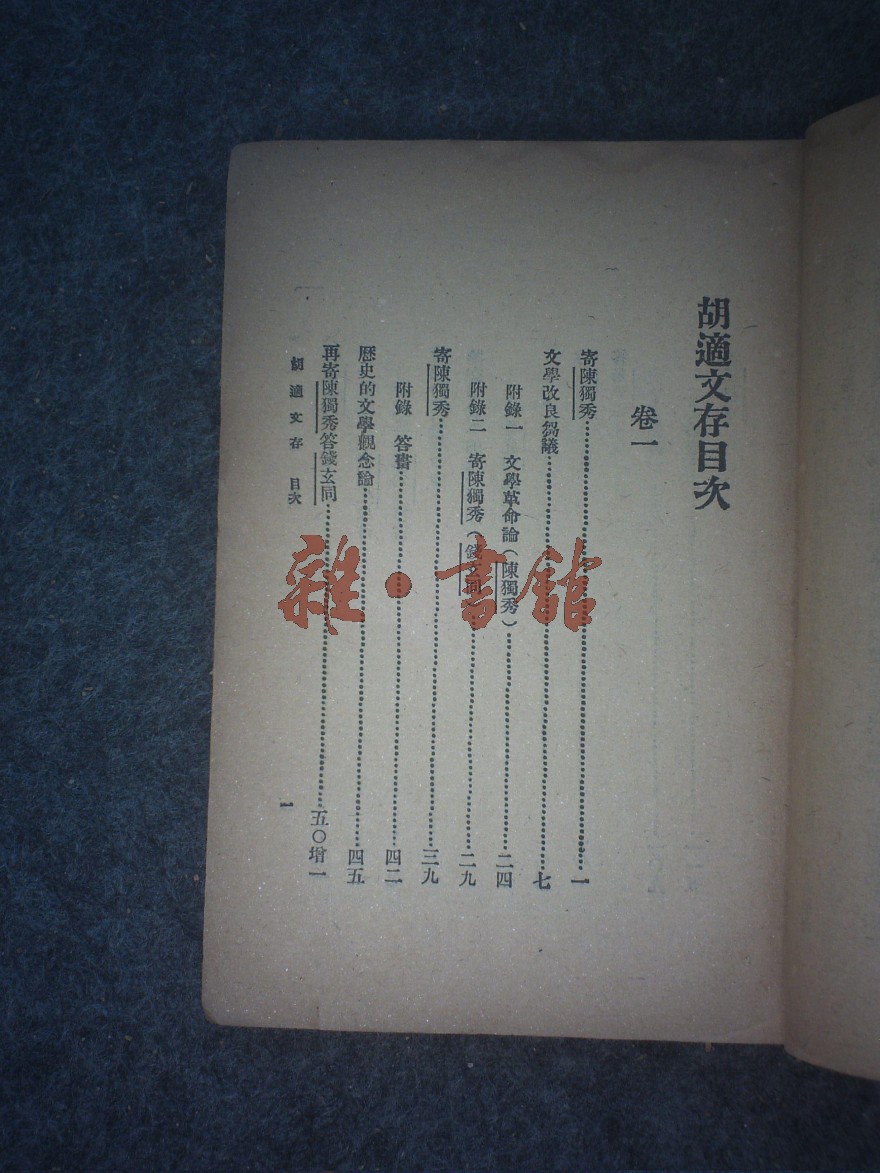 胡適文存目次
卷一
寄陳獨秀⋯⋯⋯⋯一
文學改良芻議⋯⋯⋯⋯七
附錄一 文學革命論(陳獨秀)⋯⋯⋯⋯二四
附錄二 寄陳獨秀(錢玄同)⋯⋯⋯⋯二九
寄陳獨秀⋯⋯⋯⋯三九
附錄 答書⋯⋯⋯⋯四二
歷史的文學觀念論⋯⋯⋯⋯四五
再寄陳獨秀答錢玄同⋯⋯⋯⋯五〇增一
胡適文存 目次 一
雜·書館